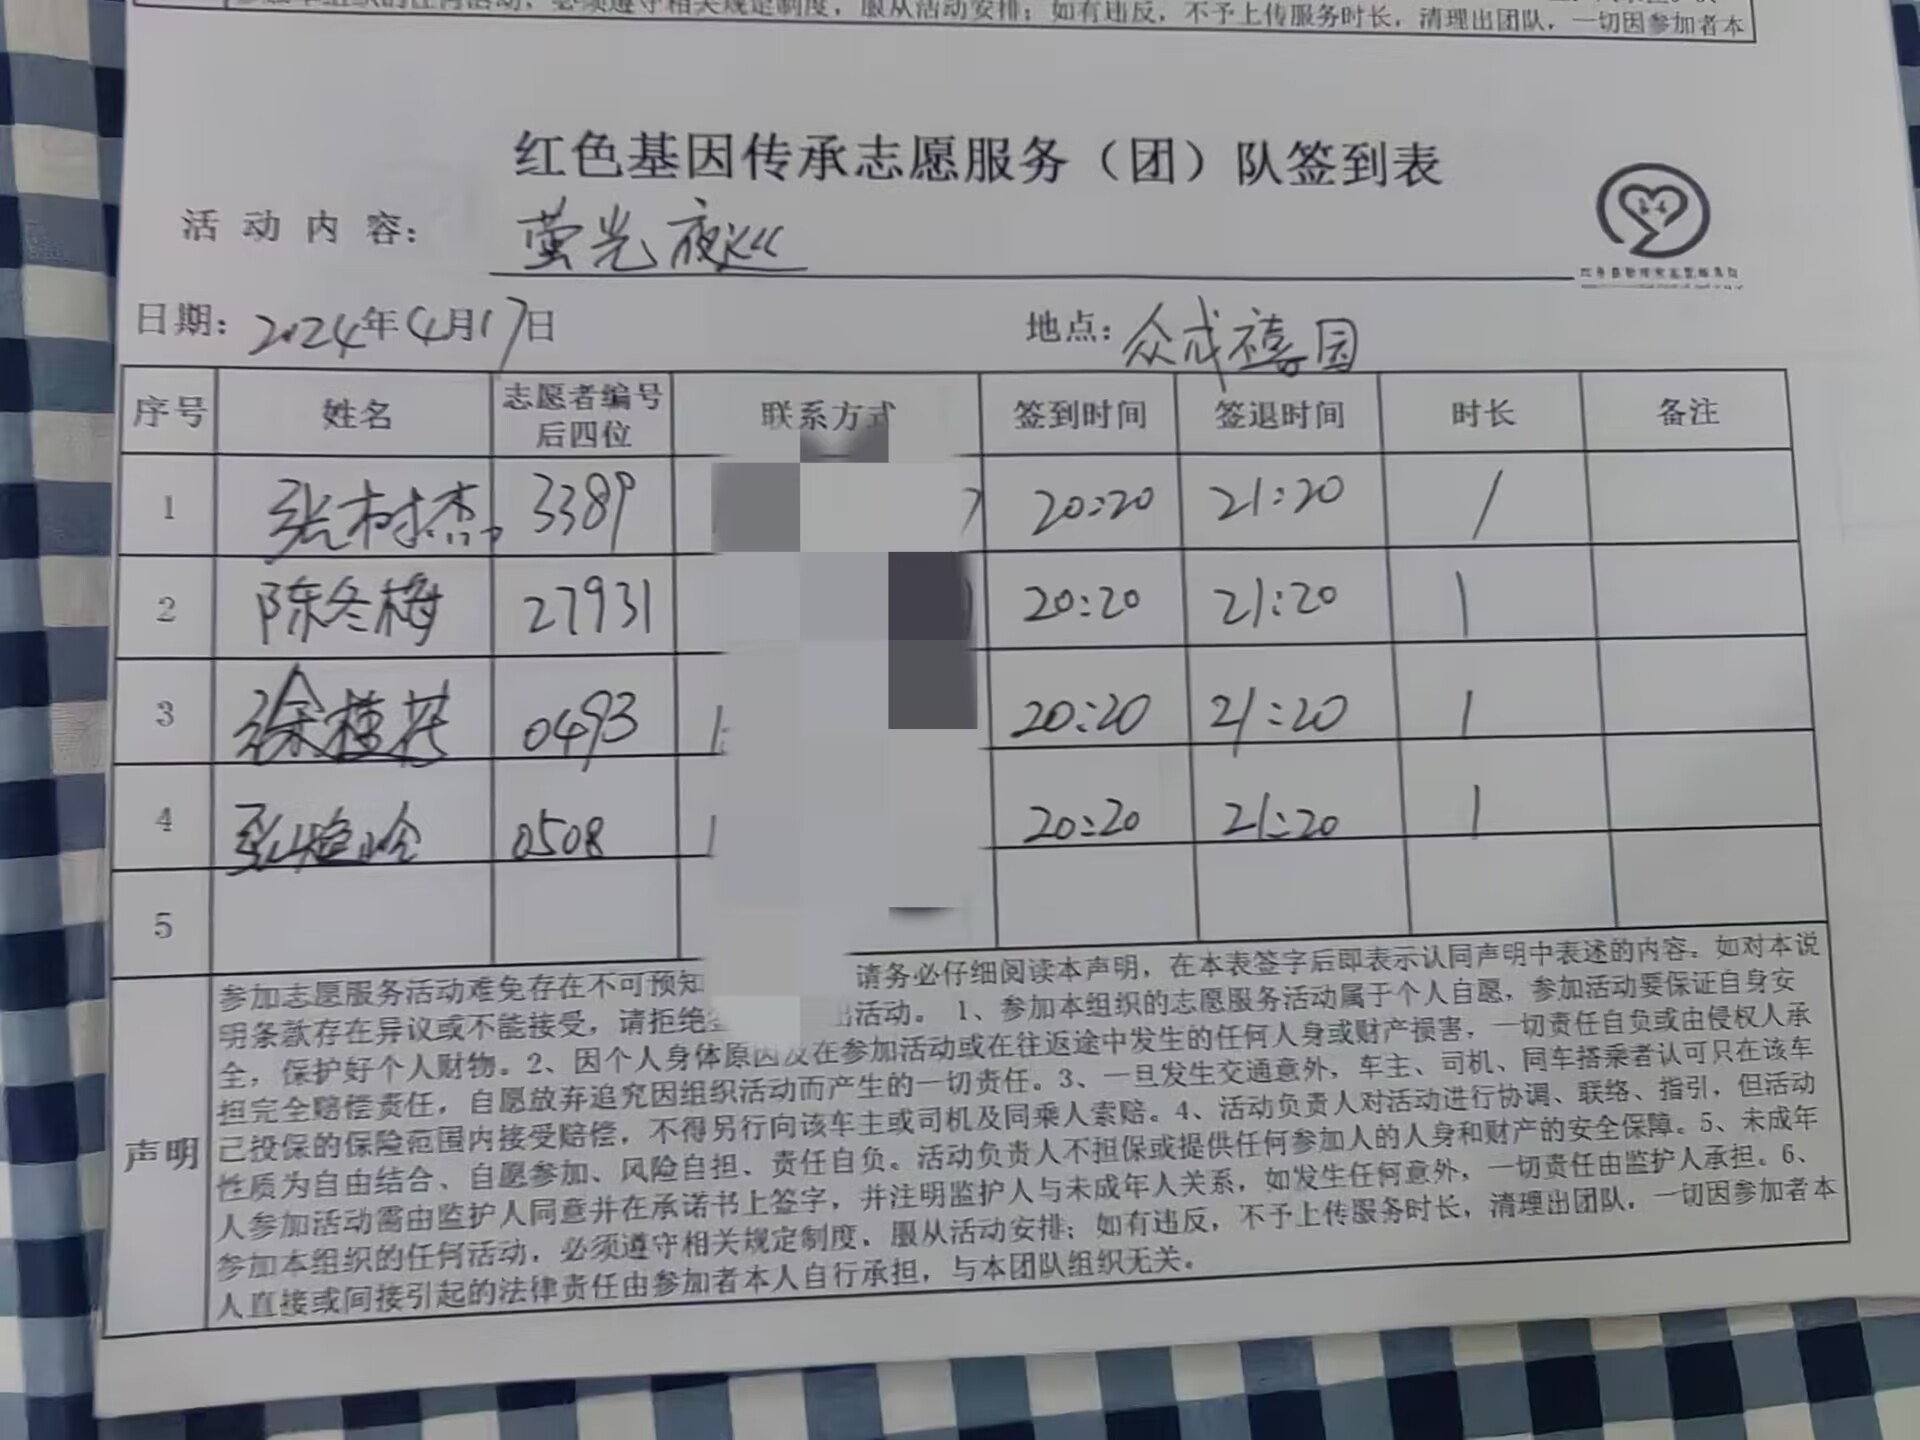 参加本组织的任何活动，必须遵守相关规定制度，服从活动安排；如有违反，不予上传服务时长，清理出团队，一切因参加者本
红色基因传承志愿服务（团）队签到表
活动内容： 萤光夜巡
日期：2024年4月17日 地点：众成禧园
序号 姓名 志愿者编号后四位 联系方式 签到时间 签退时间 时长 备注
1 张树杰 3389 20:20 21:20 1
2 陈冬梅 27931 20:20 21:20 1
3 徐桂花 0493 20:20 21:20 1
4 张 0508 20:20 21:20 1
5
声明
参加志愿服务活动难免存在不可预知 请务必仔细阅读本声明，在本表签字后即表示认同声明中表述的内容。如对本说
明条款存在异议或不能接受，请拒绝 出活动。 1、参加本组织的志愿服务活动属于个人自愿，参加活动要保证自身安
全，保护好个人财物。2、因个人身体原因及在参加活动或在往返途中发生的任何人身或财产损害，一切责任自负或由侵权人承
担完全赔偿责任，自愿放弃追究因组织活动而产生的一切责任。3、一旦发生交通意外，车主、司机、同车搭乘者认可只在该车
已投保的保险范围内接受赔偿，不得另行向该车主或司机及同乘人索赔。4、活动负责人对活动进行协调、联络、指引，但活动
性质为自由结合、自愿参加、风险自担、责任自负。活动负责人不担保或提供任何参加人的人身和财产的安全保障。5、未成年
人参加活动需由监护人同意并在承诺书上签字，并注明监护人与未成年人关系，如发生任何意外，一切责任由监护人承担。6、
参加本组织的任何活动，必须遵守相关规定制度，服从活动安排；如有违反，不予上传服务时长，清理出团队，一切因参加者本
人直接或间接引起的法律责任由参加者本人自行承担，与本团队组织无关。